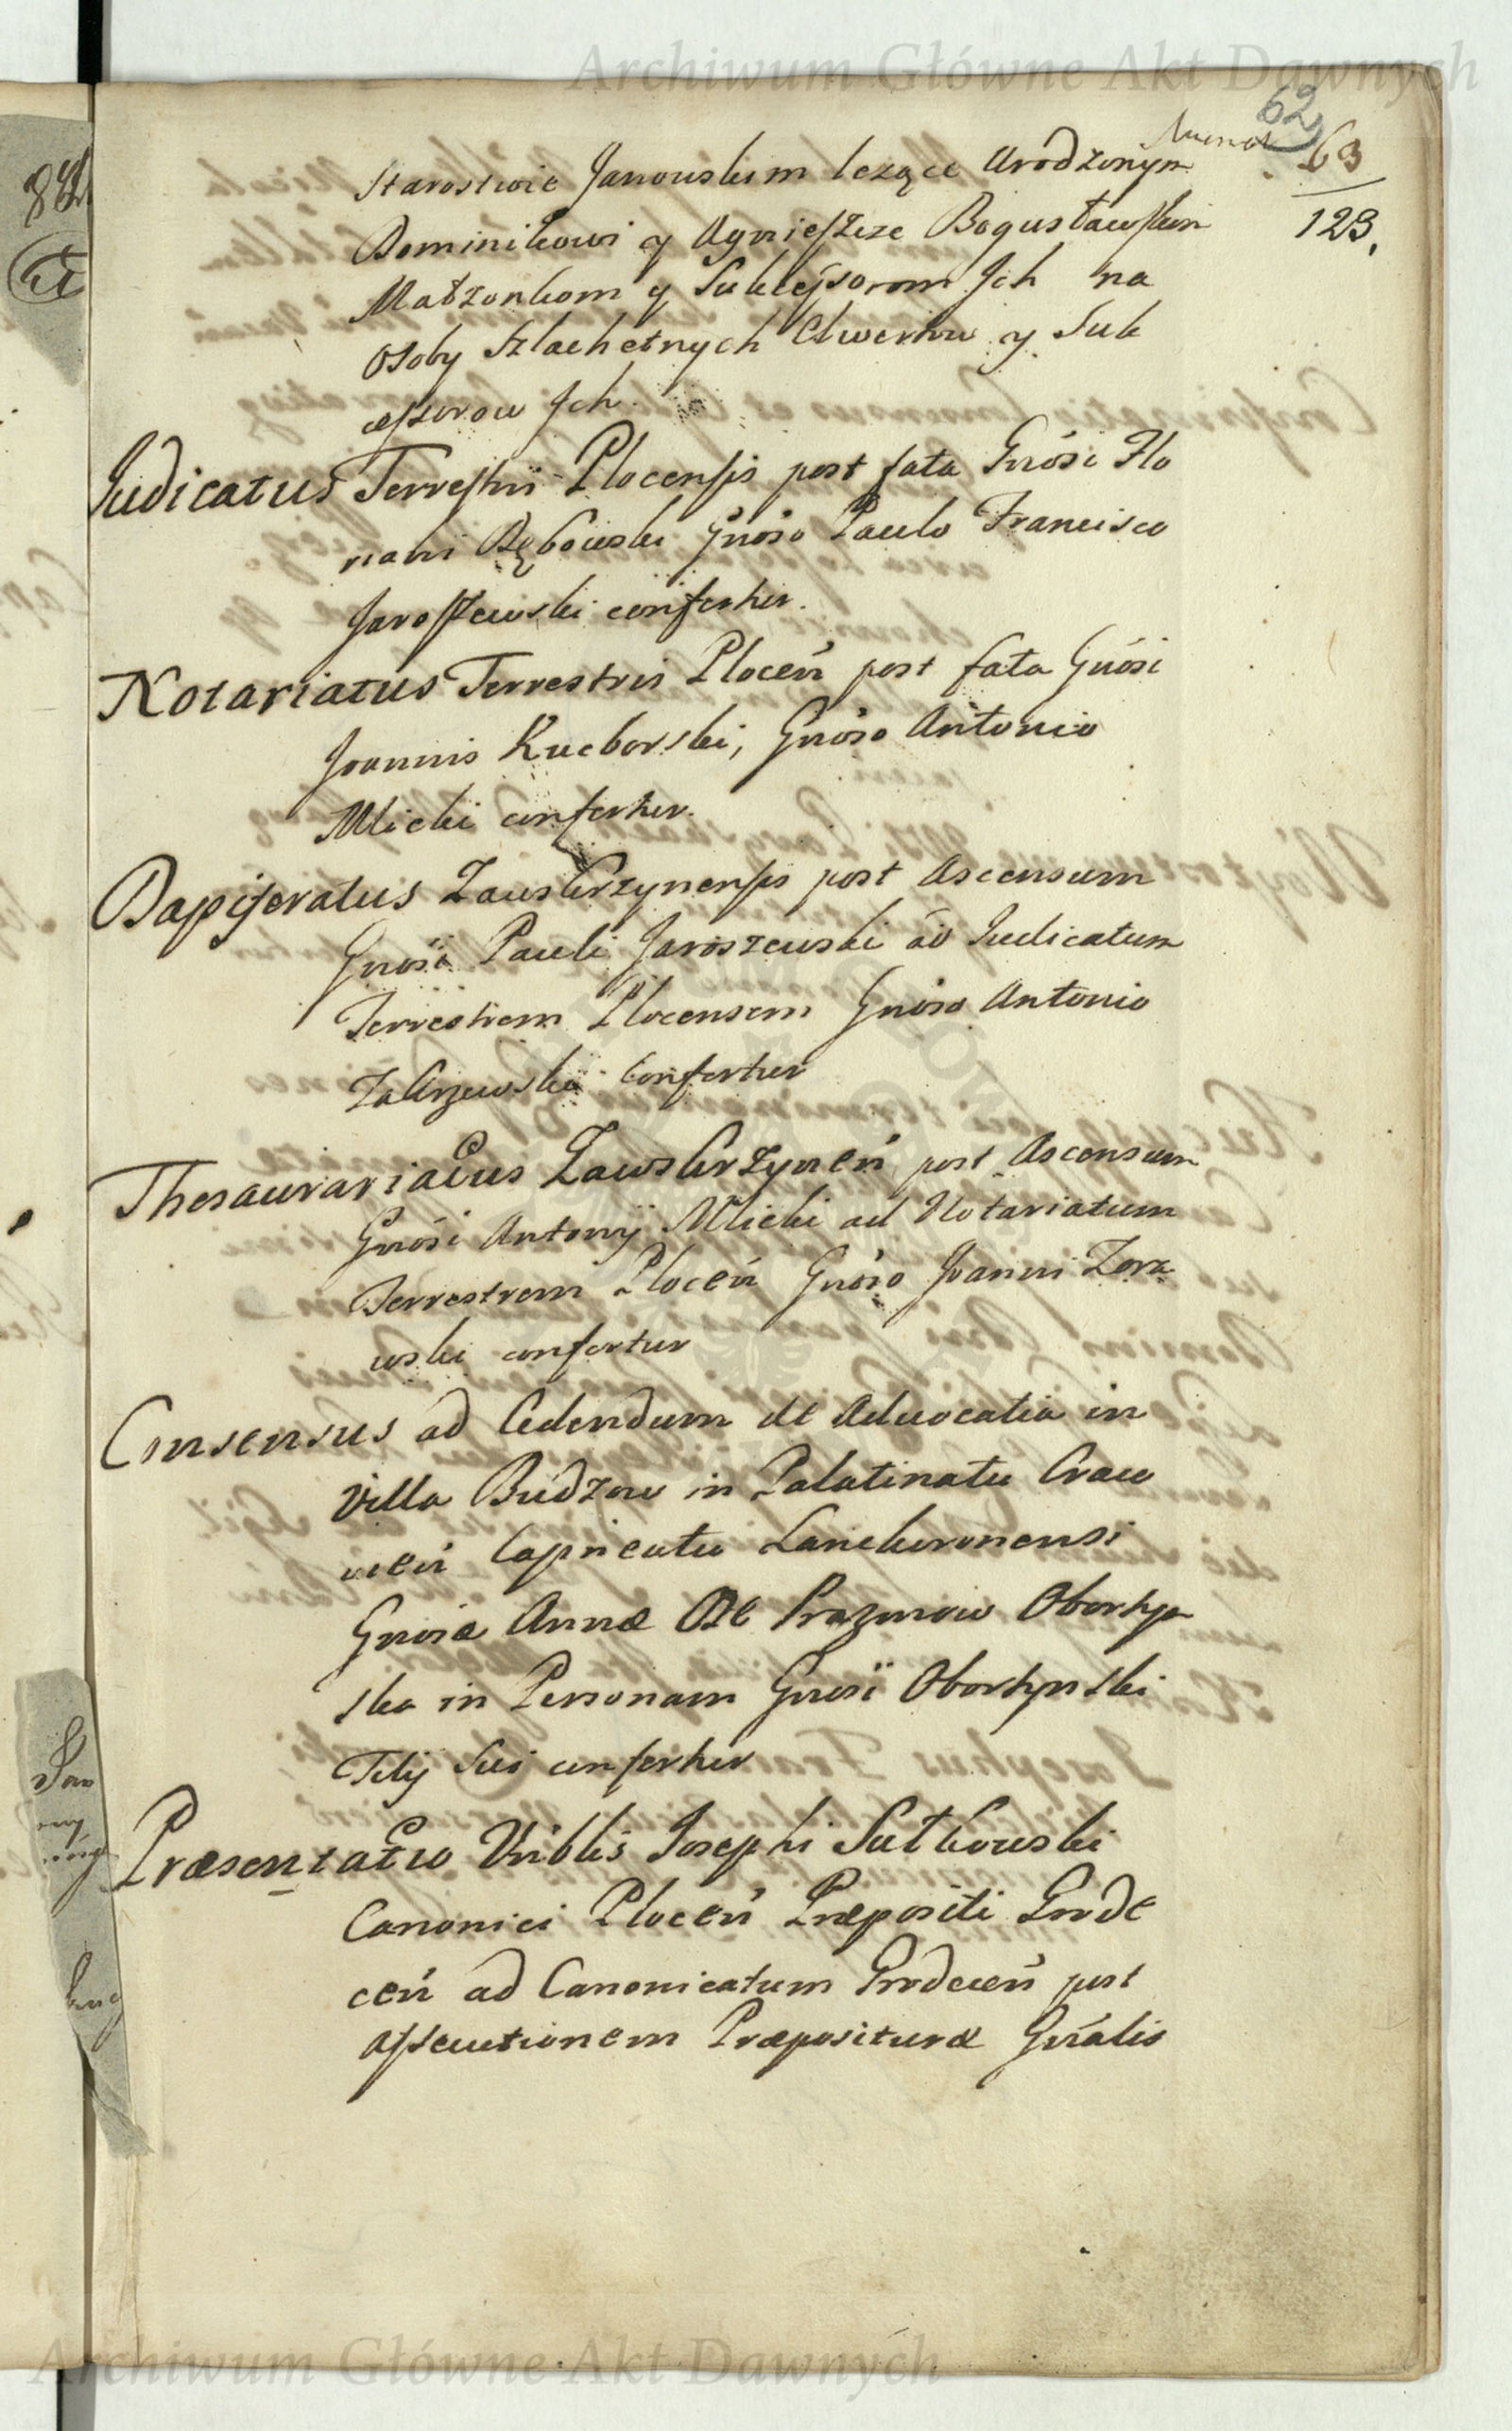 Archiwum Główne Akt Dawnych
62
63
123.
Starostwie Janowskim lezące Urodzonym
Dominikowi y Agnieszce Bogusławskim
Małzonkom y Sukcessorom Jch na
Osoby Szlachetnych Cłwerkow y Suk
cessorow Jch.
Judicatus Terrestris Plocensis post fata Gnosi Flo
riani Dębowski Gnoso Paulo Francisco
Jaroszewski confertur.
Notariatus Terrestris Plocen post fata Gnosi
Joannis Kucborski, Gnoso Antonio
Mlicki confertur.
Dapiferatus Zawskrzynensis post Ascensum
Gnosi Pauli Jaroszewski ad Judicatum
Terrestrem Plocensem Gnoso Antonio
Zakrzewski confertur
Thesaurariatus Zawskrzynen post Ascensum
Gnosi Antonij Mlicki ad Notariatum
Terrestrem Plocen Gnoso Joanni Zora
wski confertur
Consensus ad Cedendum de Advocatia in
Villa Budzow in Palatinatu Craco
vien Capneatu Lanckoronensi
Gnosæ Annæ De Prazmow Obortyn
ska in Personam Gnosi Obortynski
Filij Sui confertur
Præsentatio Vnblis Josephi Sutkowski
Canonici Plocen Præpositi Grode
cen ad Canonicatum Grodecen post
assecutionem Præposituræ Gnalis
Archiwum Główne Akt Dawnych